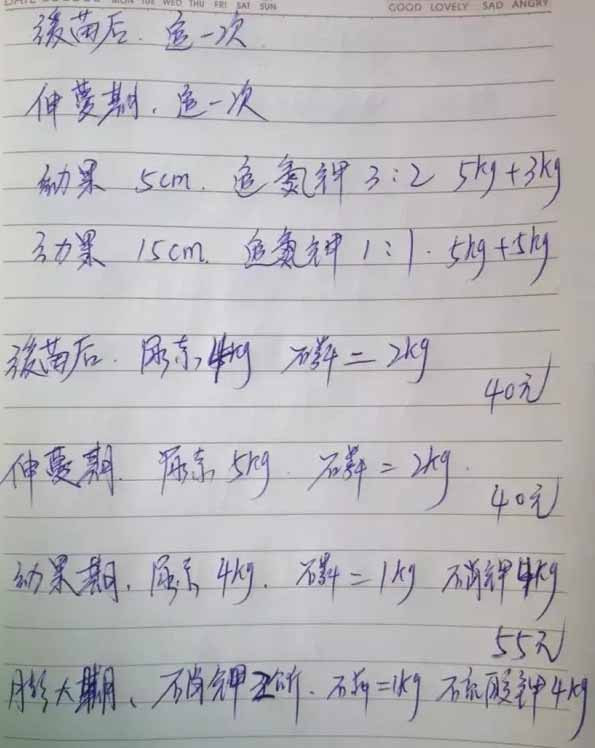 MON TUE WED THU FRI SAT SUN GOOD LOVELY SAD ANGRY
缓苗后. 追一次
伸蔓期. 追一次
幼果 5cm. 追氮钾 3:2 5kg+3kg
幼果 15cm. 追氮钾 1:1. 5kg+5kg
缓苗后. 尿素 4kg 磷二 2kg
40元
伸蔓期. 尿素 5kg. 磷二 2kg.
40元
幼果期. 尿素 4kg. 磷二 1kg 硝钾 4kg
55元
膨大期、硝钾 2斤. 磷二 1kg 硫酸钾 4kg